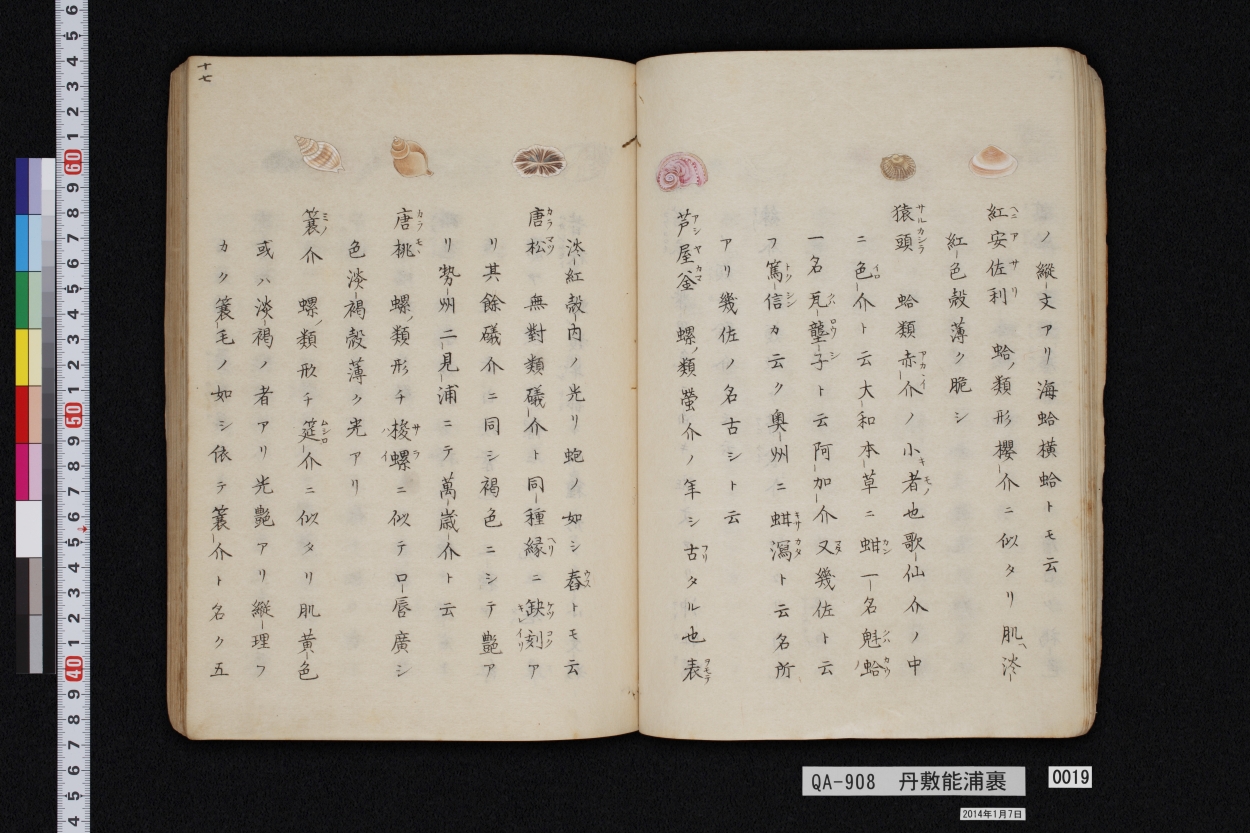 ノ縦文アリ海蛤横蛤トモ云
紅安佐利 蛤ノ類形櫻介ニ似タリ肌ヘ淡
紅色殻薄ク脆シ
猿頭 蛤類赤介ノ小キ者也歌仙介ノ中
ニ色介ト云大和本草ニ蚶一名魁蛤
一名瓦壟子ト云阿加介又幾佐ト云
フ篤信カ云ク奥州ニ蚶瀉ト云名所
アリ幾佐ノ名古シト云
芦屋釜 螺ノ類螢介ノ年シ古タル也表
淡紅殻内ノ光リ蚫ノ如シ舂トモ云
唐松 無對類礒介ト同種縁ニ缺刻ア
リ其餘礒介ニ同シ褐色ニシテ艶ア
リ勢州二見浦ニテ萬歳介ト云
唐桃 螺ノ類形チ梭螺ニ似テロ唇廣シ
色淡褐殻薄ク光アリ
簑介 螺ノ類形チ筵介ニ似タリ肌黄色
或ハ淡褐ノ者アリ光艶アリ縦理フ
カク簑毛ノ如シ依テ簑介ト名ク五
十七
QA-908 丹敷能浦裹
0019
2014年1月7日